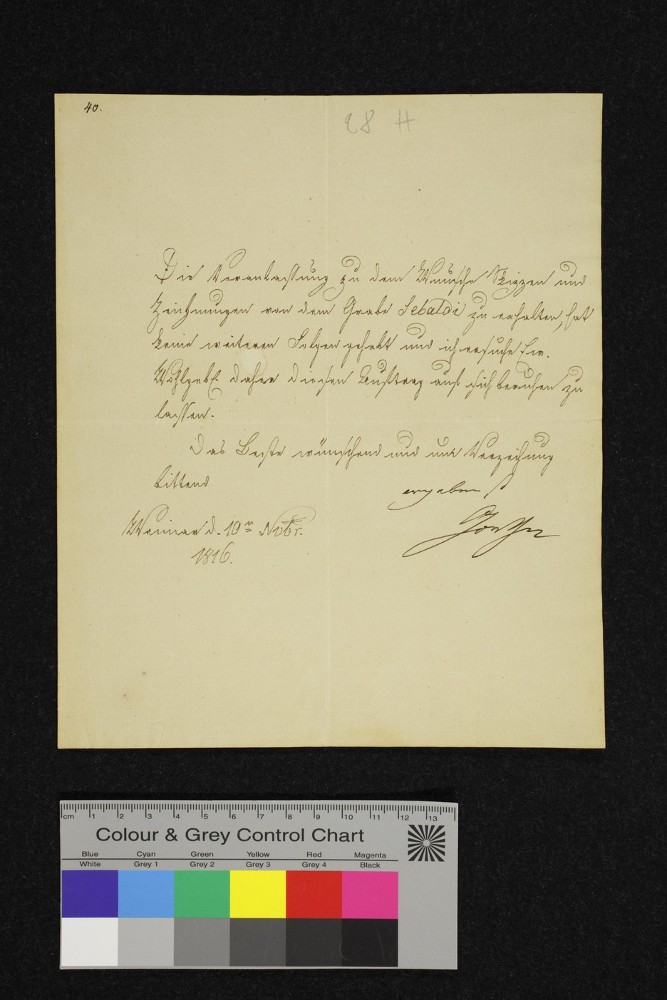 40.
28 H
Die Veranlassung zu dem Wunsche Skizzen und
Zeichnungen von dem Grabe Sebaldi zu erhalten, hat
keine weiteren Folgen gehabt und ich ersuche Ew.
Wohlgeb. daher diesen Auftrag auf sich beruhen zu
lassen.
Das Beste wünschend und um Verzeihung
bittend
ergebenst
Weimar d. 19n Nobr.
Goethe
1816.
cm 1 2 3 4 5 6 7 8 9 10 11 12 13
Colour & Grey Control Chart
Blue Cyan Green Yellow Red Magenta
White Grey 1 Grey 2 Grey 3 Grey 4 Black